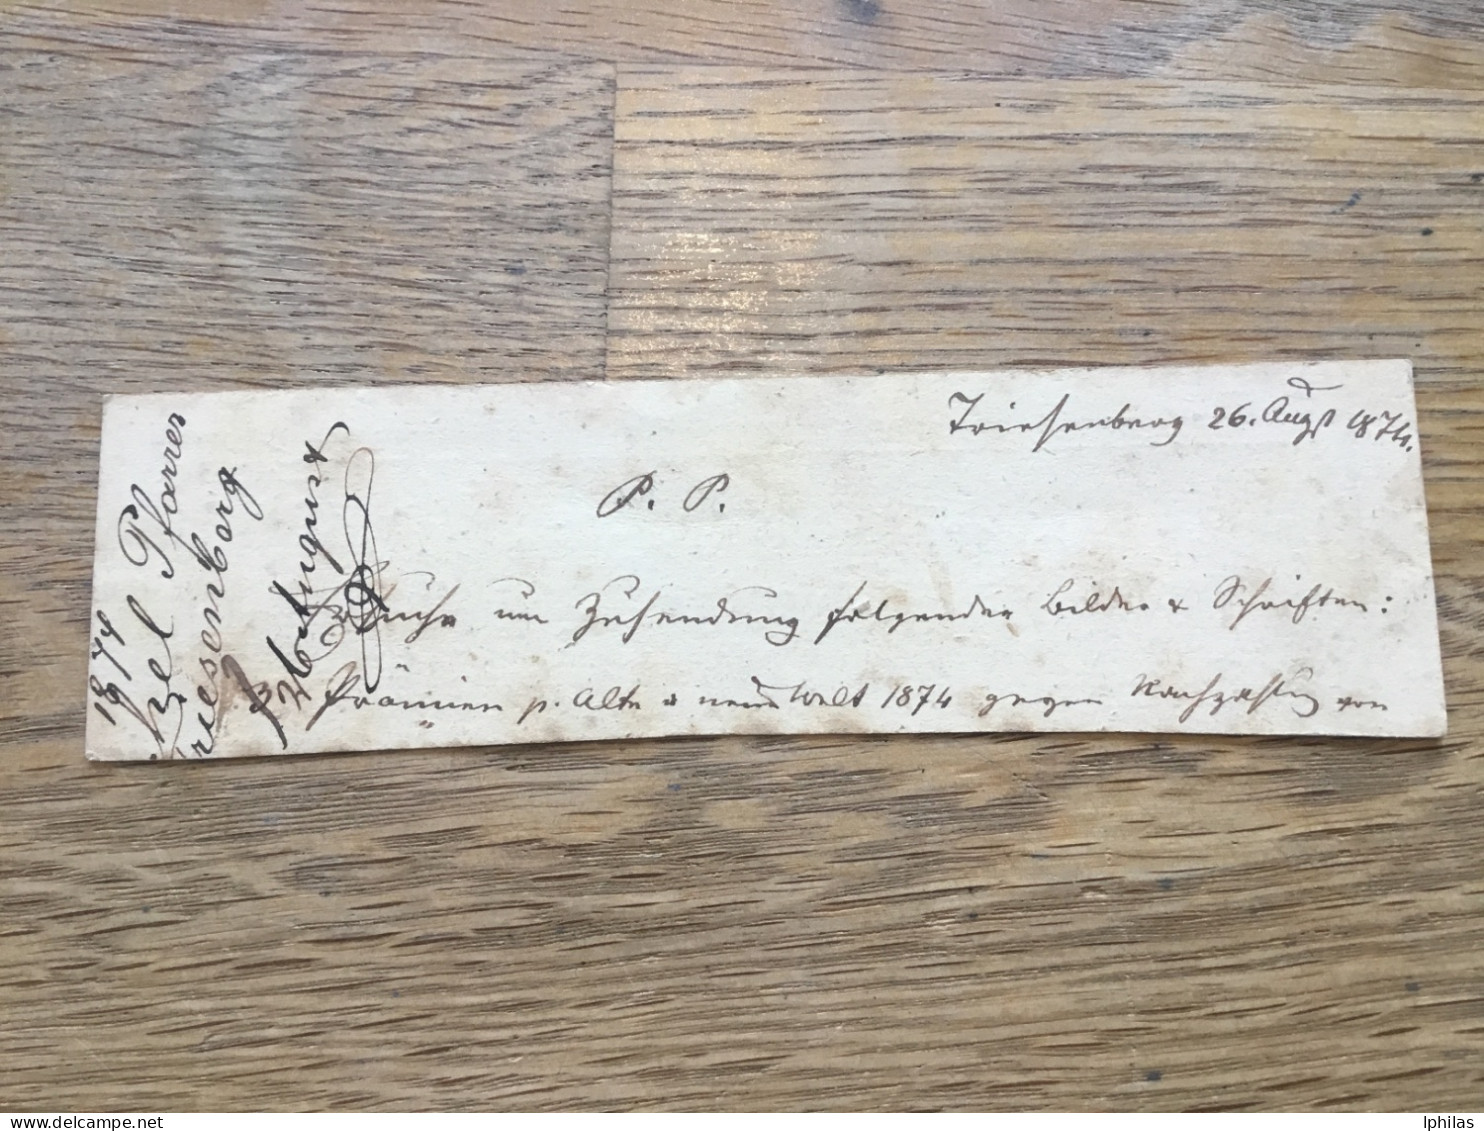 Triesenberg 26. Augst 1874.
P. P.
Ersuche um Zusendung folgender Bilder & Schriften:
3 Prämien p. Alte & neue Welt 1874 gegen Nachzahlung von
1874
Pfarrer
Triesenberg
26 August
lphilas